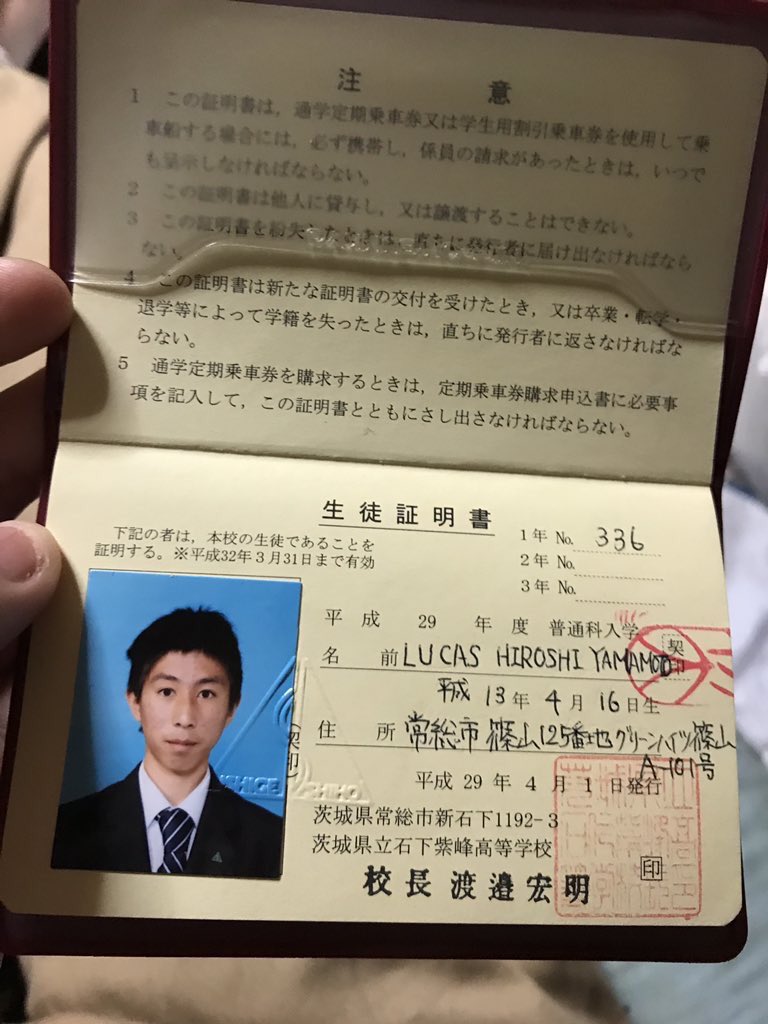 注 意
1 この証明書は，通学定期乗車券又は学生用割引乗車券を使用して乗
車船する場合には，必ず携帯し，係員の請求があったときは，いつで
も呈示しなければならない。
2 この証明書は他人に貸与し，又は譲渡することはできない。
3 この証明書を紛失したときは，直ちに発行者に届け出なければなら
ない。
4 この証明書は新たな証明書の交付を受けたとき，又は卒業・転学・
退学等によって学籍を失ったときは，直ちに発行者に返さなければな
らない。
5 通学定期乗車券を購求するときは，定期乗車券購求申込書に必要事
項を記入して，この証明書とともにさし出さなければならない。
生徒証明書
下記の者は，本校の生徒であることを
証明する。※平成32年3月31日まで有効
1年 No. 336
2年 No.
3年 No.
平成 29 年度 普通科入学
名 前 LUCAS HIROSHI YAMAMOTO
契印
平成 13年 4月 16日生
住 所 常総市篠山125番地グリーンハイツ篠山
A-101号
(契印)
平成 29年 4月 1日発行
茨城県常総市新石下1192-3
茨城県立石下紫峰高等学校
校長 渡邉宏明
印